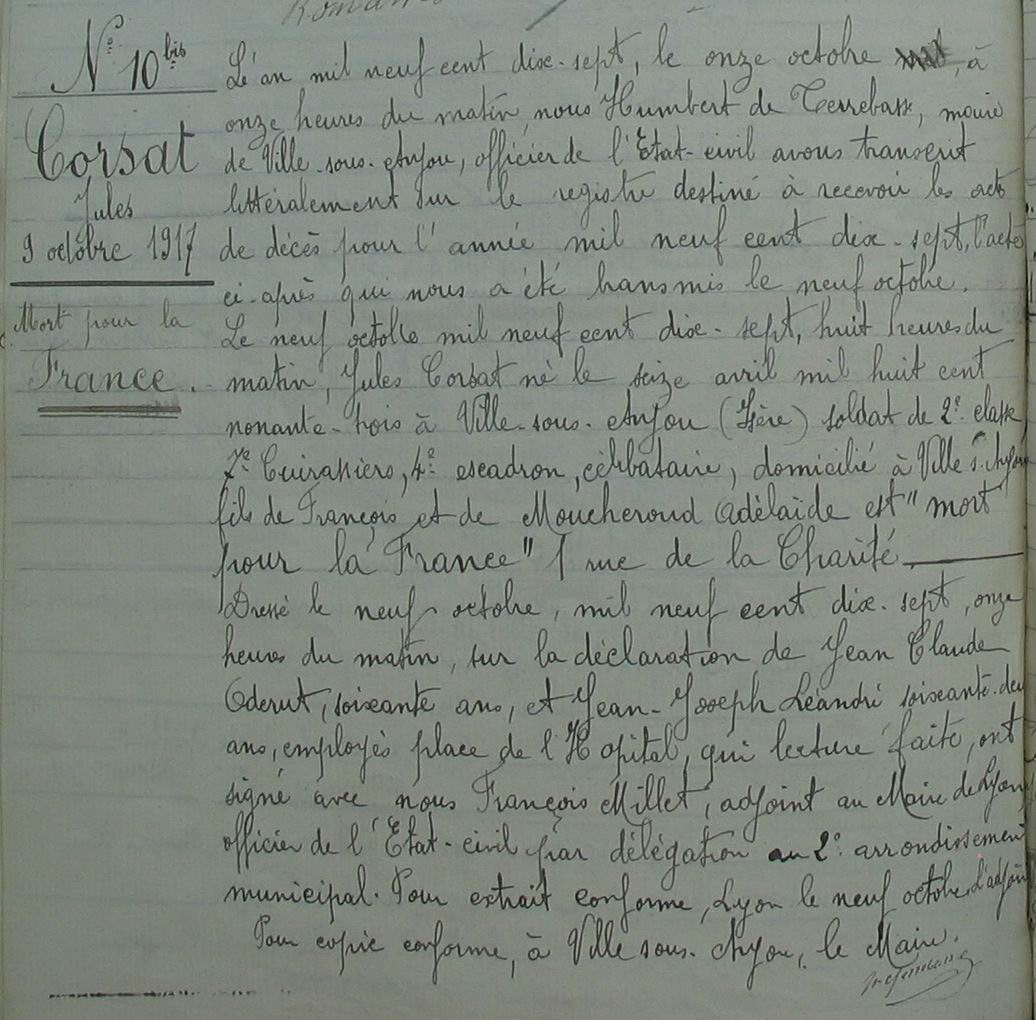 N° 10 bis
Corsat
Jules
9 octobre 1917
Mort pour la
France.
L'an mil neuf cent dix-sept, le onze octobre, à
onze heures du matin, nous Humbert de Terrebasse, maire
de Ville-sous-Anjou, officier de l'Etat-civil avons transcrit
littéralement sur le registre destiné à recevoir les actes
de décès pour l'année mil neuf cent dix-sept, l'acte
ci-après qui nous a été transmis le neuf octobre.
Le neuf octobre mil neuf cent dix-sept, huit heures du
matin, Jules Corsat né le seize avril mil huit cent
nonante-trois à Ville-sous-Anjou (Isère) soldat de 2e classe
7e Cuirassiers, 4e escadron, célibataire, domicilié à Ville s. Anjou
fils de François et de Moucheroud Adélaïde est "mort
pour la France" 1 rue de la Charité
Dressé le neuf octobre, mil neuf cent dix-sept, onze
heures du matin, sur la déclaration de Jean Claude
Oderut, soixante ans, et Jean-Joseph Léandri soixante-deux
ans, employés place de l'Hopital, qui lecture faite, ont
signé avec nous François Millet, adjoint au Maire de Lyon
officier de l'Etat-civil par délégation au 2e arrondissement
municipal. Pour extrait conforme, Lyon le neuf octobre, l'adjoint
Pour copie conforme, à Ville sous-Anjou, le Maire.